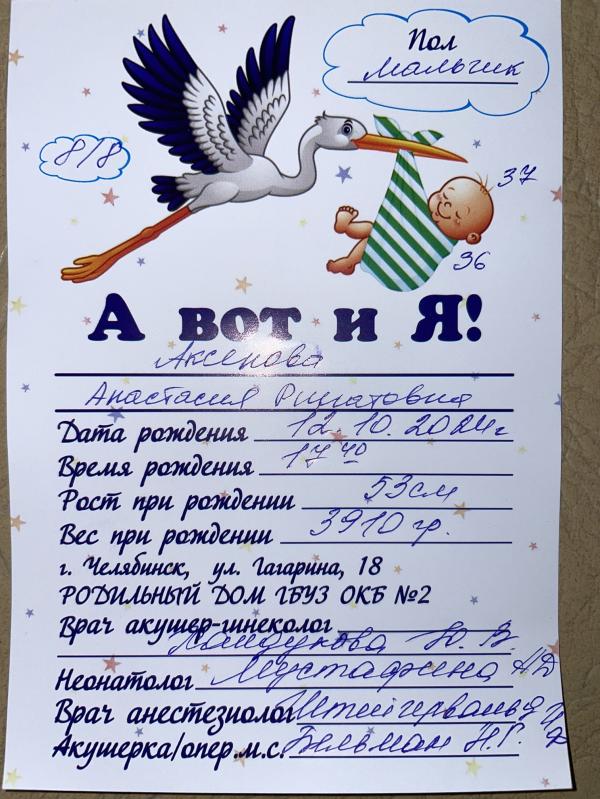 Пол
мальчик
8/8
37
36
А вот и Я!
Аксенова
Анастасия Ришатовна
Дата рождения 12.10.2024г
Время рождения 17 40
Рост при рождении 53см
Вес при рождении 3910 гр.
г. Челябинск, ул. Гагарина, 18
РОДИЛЬНЫЙ ДОМ ГБУЗ ОКБ №2
Врач акушер-гинеколог
Хайдукова Ю. В.
Неонатолог Мустафина АД
Врач анестезиолог
Акушерка/опер.м.с. Бельман Н.Г.